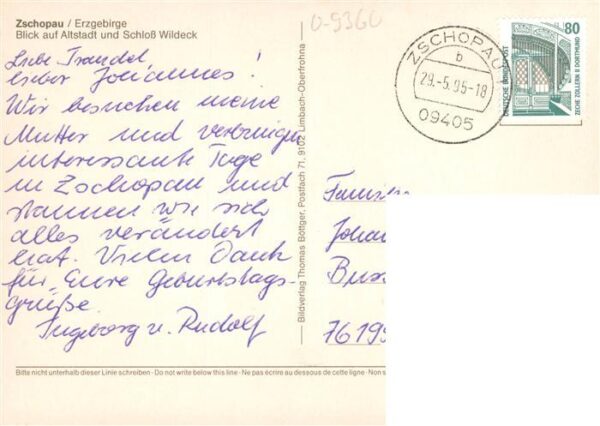 Zschopau / Erzgebirge
Blick auf Altstadt und Schloß Wildeck
Liebe Traudel,
lieber Johannes!
Wir besuchen meine
Mutter und verbringen
interessante Tage
in Zschopau und
staunen wie sich
alles verändert
hat. Vielen Dank
für Eure Geburtstags-
grüße.
Ingeborg u. Rudolf
Bitte nicht unterhalb dieser Linie schreiben · Do not write below this line · Ne pas écrire au dessous de cette ligne · Non s
Bildverlag Thomas Böttger, Postfach 71, 9102 Limbach-Oberfrohna
0-9360
ZSCHOPAU 1
b
29.-5.95-18
09405
80
DEUTSCHE BUNDESPOST
ZECHE ZOLLERN II DORTMUND
Johan
7619